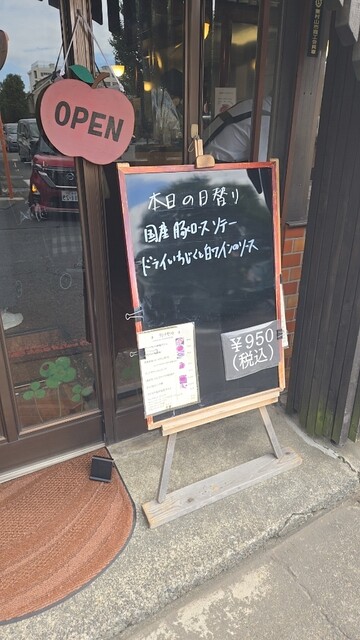 OPEN
本日の日替り
国産豚ロースソテー
ドライいちじくと白ワインのソース
¥950
(税込)